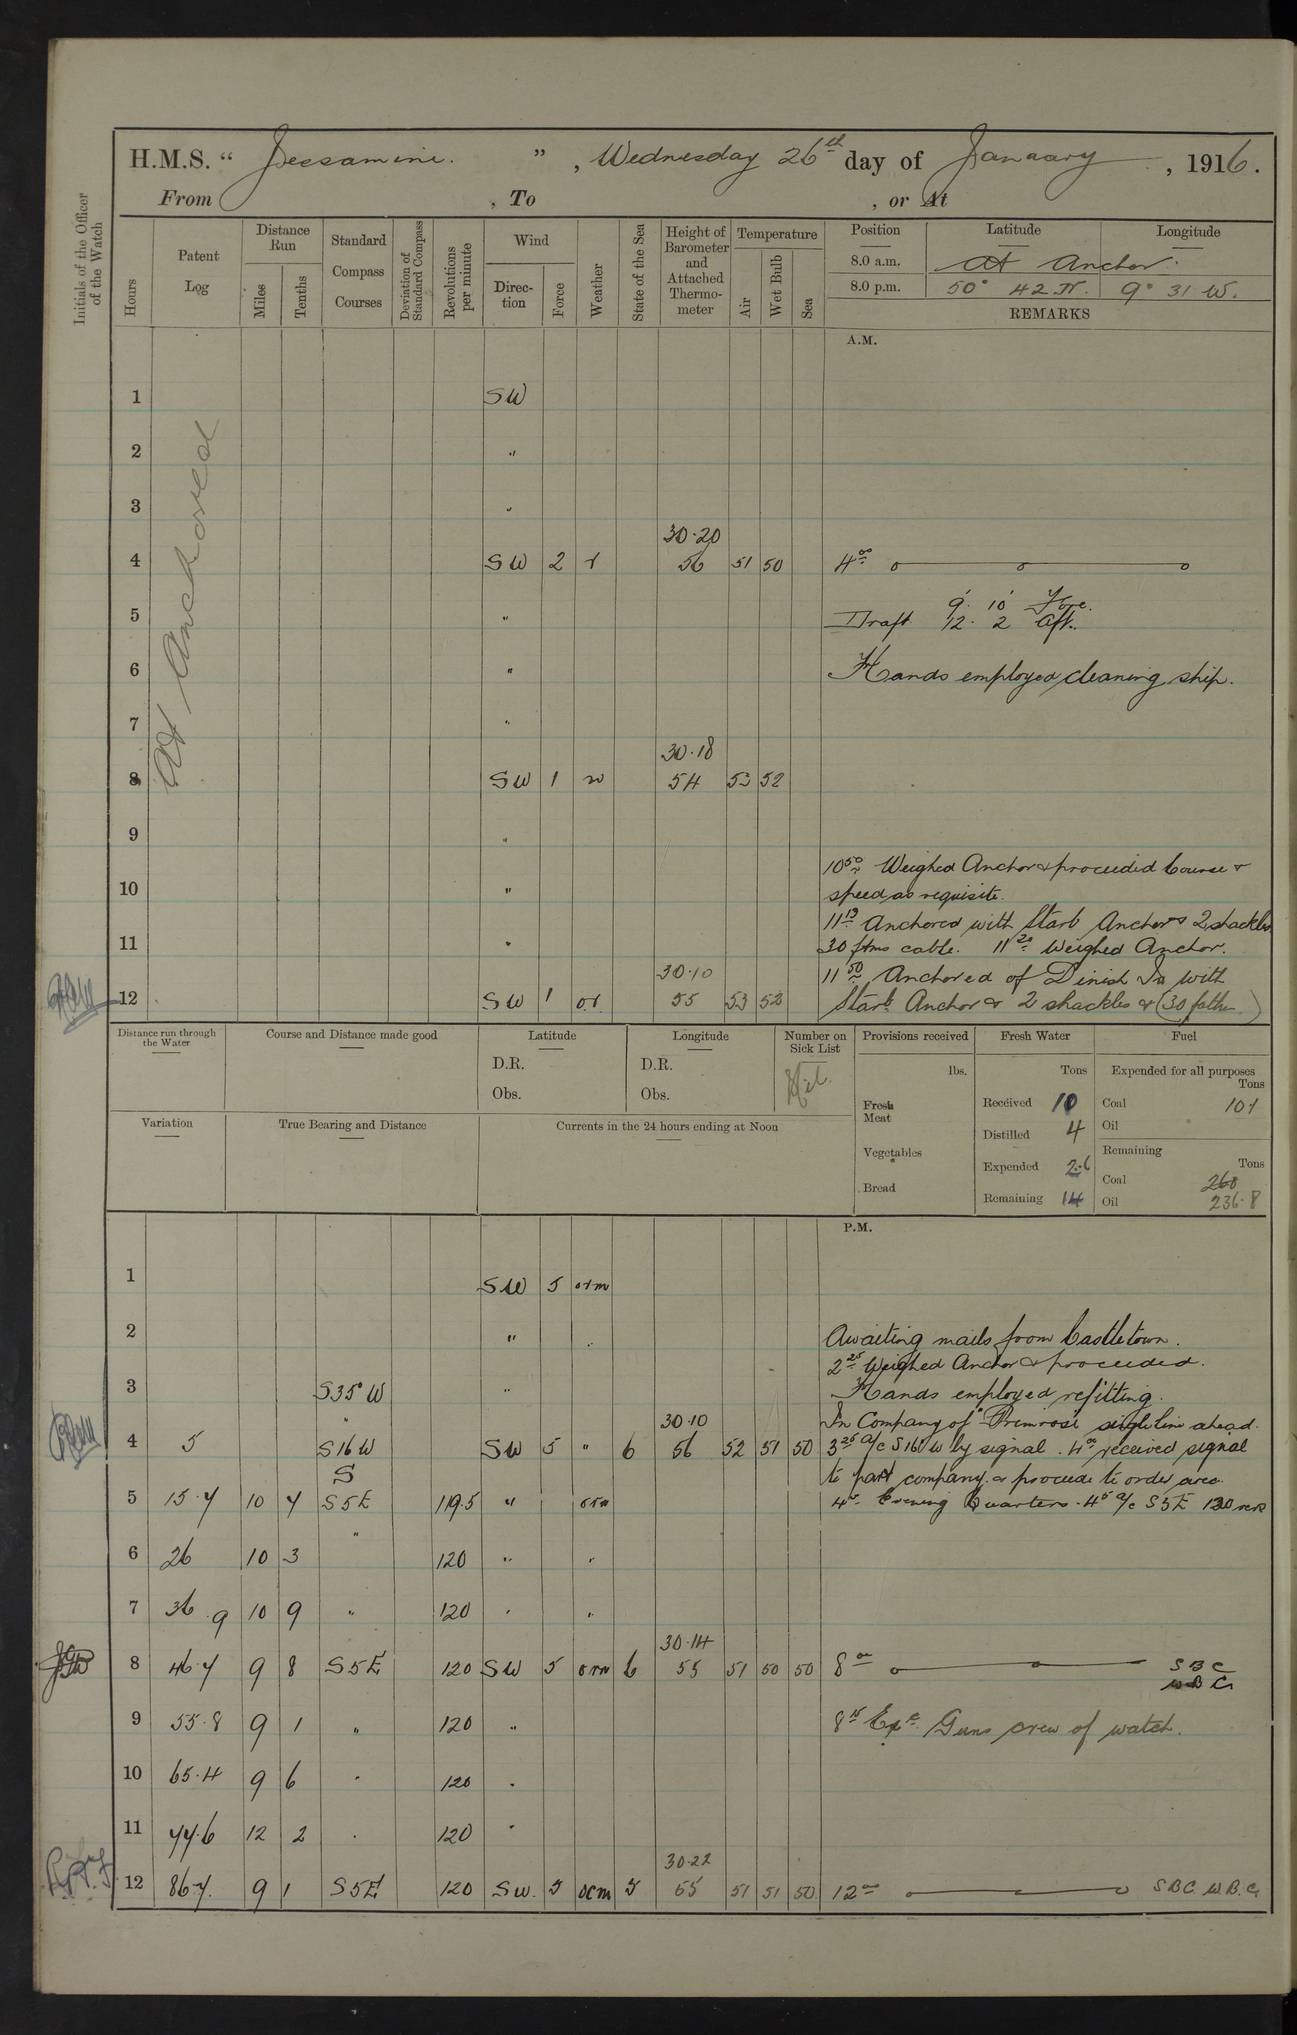 H.M.S. " Jessamine. " , Wednesday 26th day of January , 1916.
From , To , or At
Initials of the Officer of the Watch
Hours
Patent Log
Distance Run
Miles
Tenths
Standard Compass Courses
Deviation of Standard Compass
Revolutions per minute
Wind
Direction
Force
Weather
State of the Sea
Height of Barometer and Attached Thermometer
Temperature
Air
Wet Bulb
Sea
Position Latitude Longitude
8.0 a.m. At Anchor.
8.0 p.m. 50° 42 N. 9° 31 W.
REMARKS
A.M.
At Anchored
1 SW
2 "
3 "
30·20
4 SW 2 r 56 51 50 4 00
9' 10' Fore.
5 " Draft 12. 2 Aft.
6 " Hands employed cleaning ship.
7 "
30·18
8 SW 1 54 53 52
9 "
10 50 Weighed Anchor & proceeded Course &
10 " speed as requisite.
Anchored with Starb Anchor & 2 shackles
11 " 30 ftms cable. 11 20 Weighed Anchor.
30·10
11 50 Anchored of Dinish Is with
12 SW 1 or 55 53 52 Starb Anchor & 2 shackles & (30 fathm)
Distance run through the Water
Course and Distance made good
Latitude
D.R.
Obs.
Longitude
D.R.
Obs.
Number on Sick List
Nil.
Provisions received
lbs.
Fresh Meat
Vegetables
Bread
Fresh Water
Tons
Received 10
Distilled 4
Expended 2·6
Remaining 14
Fuel
Expended for all purposes
Tons
Coal 10·1
Oil
Remaining
Tons
Coal 260
Oil 236·8
Variation
True Bearing and Distance
Currents in the 24 hours ending at Noon
P.M.
1 SW 5 orm
2 " Awaiting mails from Castletown.
2 25 Weighed Anchor & proceeded.
3 S35°W " Hands employed refitting.
" 30·10 In Company of "Primrose single line ahead.
4 5 S16W SW 5 " 6 56 52 51 50 3 25 a/c S16W by signal. 4 00 received signal
S to part company & proceede to order area
5 15·7 10 7 S5E 119.5 " Evening Quarters. 4 5 a/c S5E 120 revs
6 26 10 3 " 120 " "
7 36.9 10 9 " 120 " "
30·14
8 46·7 9 8 S5E 120 SW 5 orm 6 55 51 50 50 8 00 SBC
WBG
9 55·8 9 1 " 120 " 8 15 Exd. Guns crew of watch.
10 65·4 9 6 " 120 "
11 77·6 12 2 " 120 "
30·22
12 86·7. 9 1 S5E 120 SW. 5 ocm 5 55 51 51 50 12 00 SBC. WB.G